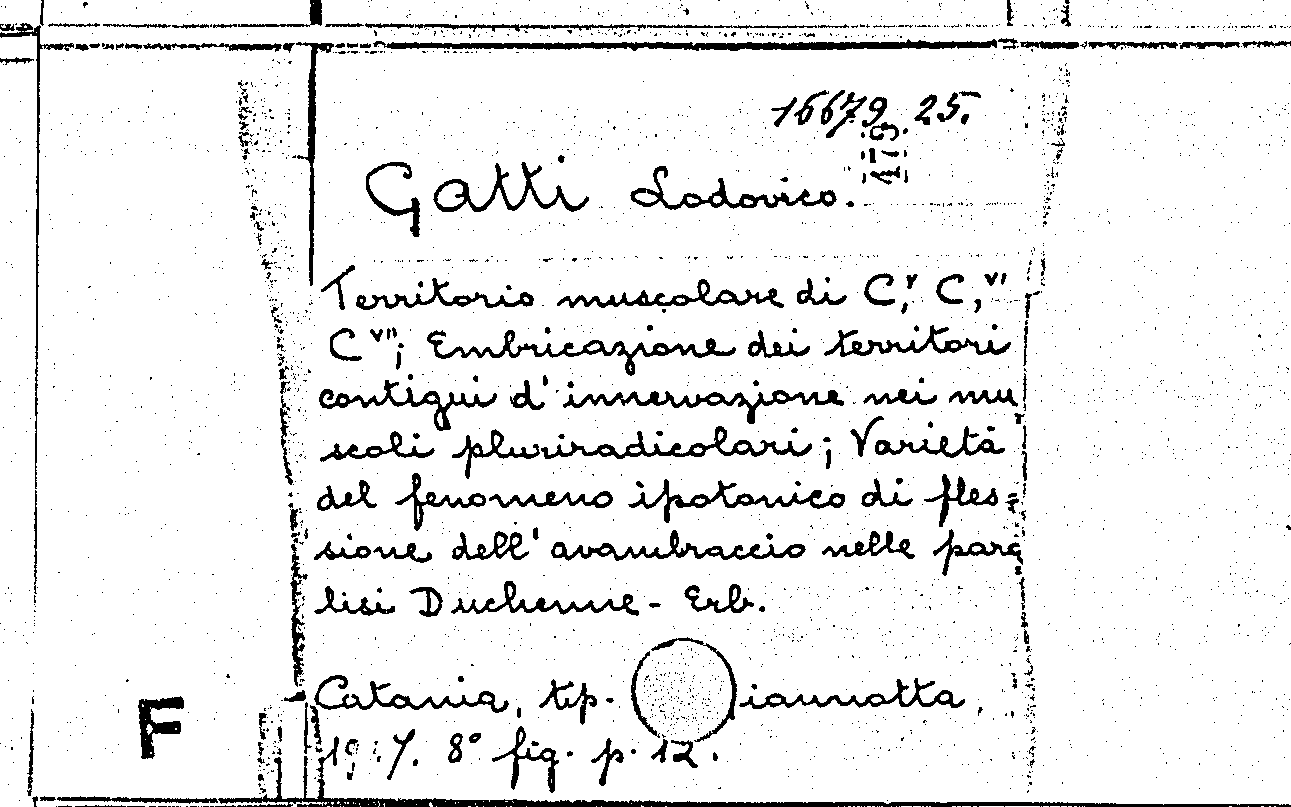 16679 25.
179
Gatti Lodovico.
Territorio muscolare di C,ⱽ C,ⱽᴵ
Cⱽᴵᴵ; Embricazione dei territori
contigui d'innervazione nei mu
scoli pluriradicolari; Varietà
del fenomeno ipotonico di fles=
sione dell'avambraccio nelle para
lisi Duchenne - Erb.
Catania, tip. iannotta,
8° fig. p. 12.
F